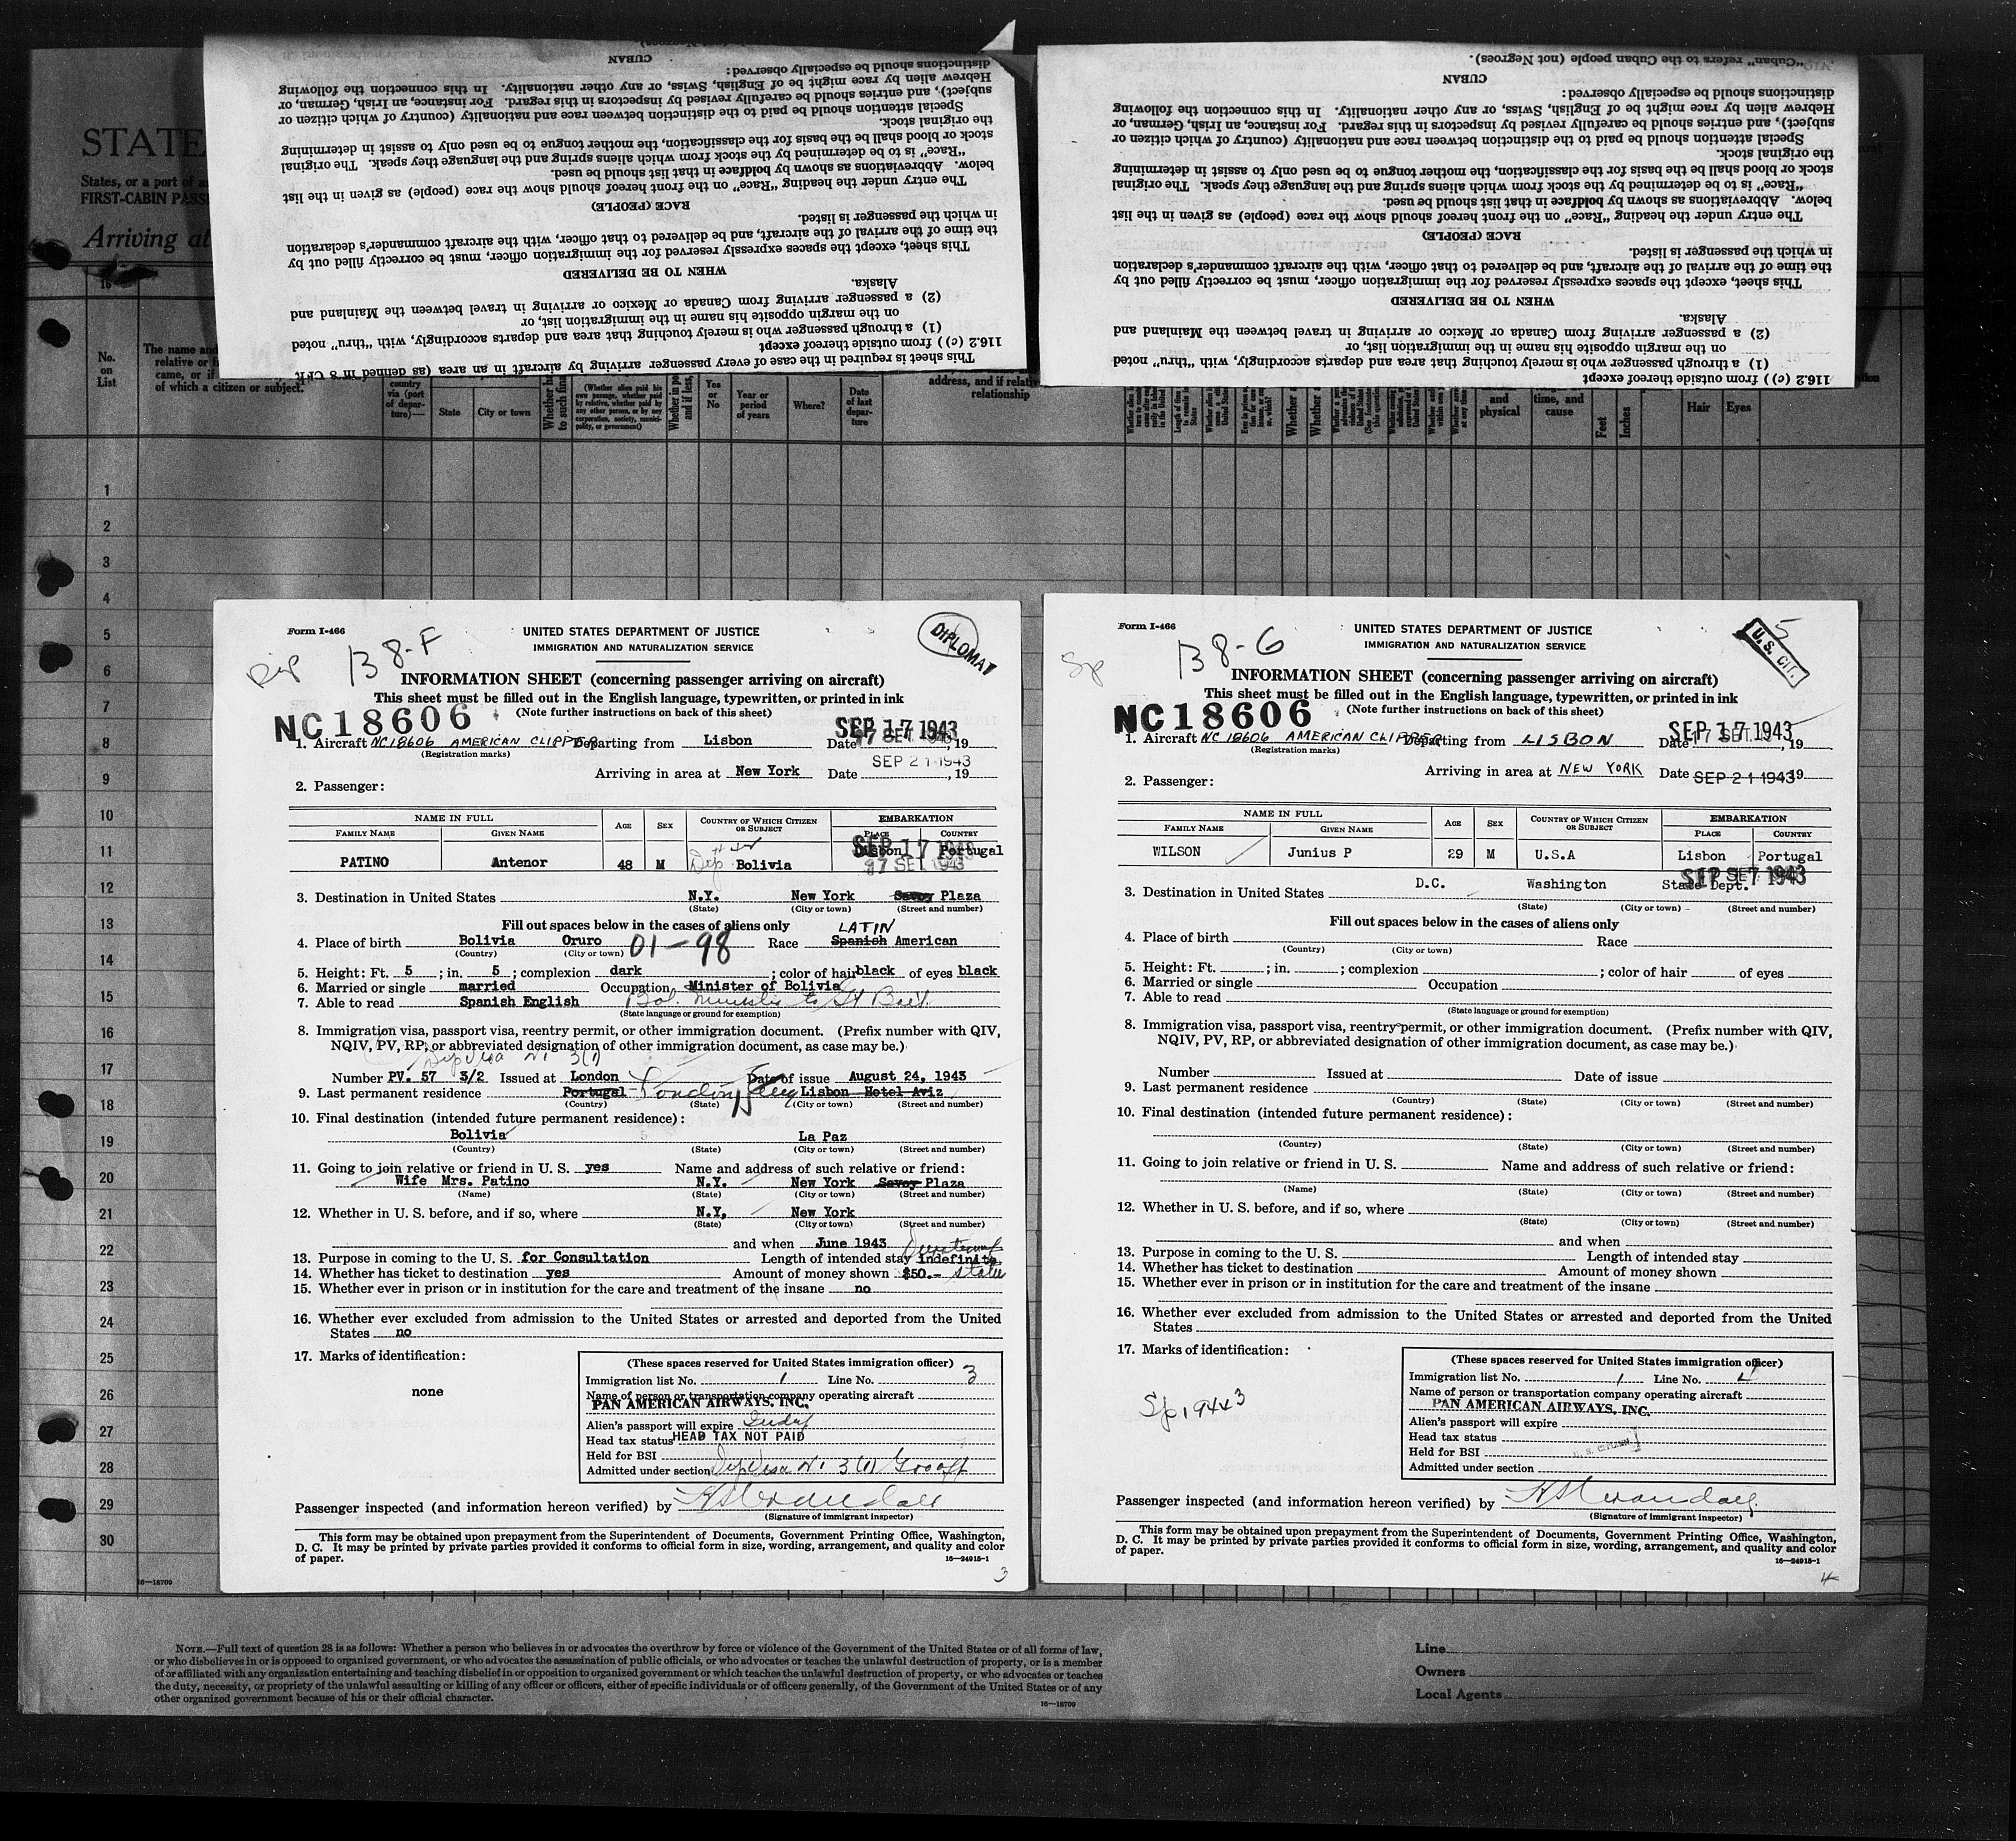 STATE
States, or a port of a
FIRST-CABIN PASS
Arriving at
CUBAN
distinctions should be especially observed:
Hebrew alien by race might be of English, Swiss, or any other nationality. In this connection the following
subject), and entries should be carefully revised by inspectors in this regard. For instance, an Irish, German, or
Special attention should be paid to the distinction between race and nationality (country of which citizen or
the original stock.
stock or blood shall be the basis for the classification, the mother tongue to be used only to assist in determining
"Race" is to be determined by the stock from which aliens spring and the language they speak. The original
below. Abbreviations as shown by boldface in that list should be used.
The entry under the heading "Race" on the front hereof should show the race (people) as given in the list
RACE (PEOPLE)
in which the passenger is listed.
the time of the arrival of the aircraft, and be delivered to that officer, with the aircraft commander's declaration
This sheet, except the spaces expressly reserved for the immigration officer, must be correctly filled out by
WHEN TO BE DELIVERED
Alaska.
(2) a passenger arriving from Canada or Mexico or arriving in travel between the Mainland and
on the margin opposite his name in the immigration list, or
(1) a through passenger who is merely touching that area and departs accordingly, with "thru" noted
116.2 (c) ) from outside thereof except
This sheet is required in the case of every passenger arriving by aircraft in an area (as defined in 8 CFR
"Cuban" refers to the Cuban people (not Negroes).
CUBAN
distinctions should be especially observed:
Hebrew alien by race might be of English, Swiss, or any other nationality. In this connection the following
subject), and entries should be carefully revised by inspectors in this regard. For instance, an Irish, German, or
Special attention should be paid to the distinction between race and nationality (country of which citizen or
the original stock.
stock or blood shall be the basis for the classification, the mother tongue to be used only to assist in determining
"Race" is to be determined by the stock from which aliens spring and the language they speak. The original
below. Abbreviations as shown by boldface in that list should be used.
The entry under the heading "Race" on the front hereof should show the race (people) as given in the list
RACE (PEOPLE)
in which the passenger is listed.
the time of the arrival of the aircraft, and be delivered to that officer, with the aircraft commander's declaration
This sheet, except the spaces expressly reserved for the immigration officer, must be correctly filled out by
WHEN TO BE DELIVERED
Alaska.
(2) a passenger arriving from Canada or Mexico or arriving in travel between the Mainland and
on the margin opposite his name in the immigration list, or
(1) a through passenger who is merely touching that area and departs accordingly, with "thru" noted
116.2 (c) ) from outside thereof except
No. on List
The name and
relative or f
came, or if
of which a citizen or subject.
country via (port of departure)—
State City or town
(Whether alien paid his own passage, whether paid by relative, whether paid by any other person, or by any corporation, society, municipality, or government)
Yes or No
Year or period of years
Where?
Date of last departure
address, and if relative
relationship
and physical
time, and cause
Feet Inches
Hair Eyes
1
2
3
4
5
6
7
8
9
10
11
12
13
14
15
16
17
18
19
20
21
22
23
24
25
26
27
28
29
30
16—18709
Form I-466
Dip 13 8-F
DIPLOMAT
UNITED STATES DEPARTMENT OF JUSTICE
IMMIGRATION AND NATURALIZATION SERVICE
INFORMATION SHEET (concerning passenger arriving on aircraft)
This sheet must be filled out in the English language, typewritten, or printed in ink
(Note further instructions on back of this sheet)
NC18606
SEP 17 1943
17 SET. 1943
1. Aircraft NC18606 AMERICAN CLIPPER Departing from Lisbon Date , 19
(Registration marks)
SEP 21 1943
Arriving in area at New York Date , 19
2. Passenger:
NAME IN FULL AGE SEX COUNTRY OF WHICH CITIZEN OR SUBJECT EMBARKATION
FAMILY NAME GIVEN NAME PLACE COUNTRY
SEP 17 1943
PATINO Antenor 48 M Dip Bolivia Lisbon Portugal
17 SET 1943
3. Destination in United States N.Y. New York Savoy Plaza
(State) (City or town) (Street and number)
Fill out spaces below in the cases of aliens only
LATIN
4. Place of birth Bolivia Oruro 01-98 Race Spanish American
(Country) (City or town)
5. Height: Ft. 5 ; in. 5 ; complexion dark ; color of hair black of eyes black
6. Married or single married Occupation Minister of Bolivia
7. Able to read Spanish English Bol. Minister to Gt Brit.
(State language or ground for exemption)
8. Immigration visa, passport visa, reentry permit, or other immigration document. (Prefix number with QIV,
NQIV, PV, RP, or abbreviated designation of other immigration document, as case may be.)
Dip Visa N: 3(1)
Number PV. 57 3/2 Issued at London Date of issue August 24, 1943
9. Last permanent residence Portugal London Eng Lisbon Hotel Aviz
(Country) (State) (City or town) (Street and number)
10. Final destination (intended future permanent residence):
Bolivia La Paz
(Country) (State) (City or town) (Street and number)
11. Going to join relative or friend in U. S. yes Name and address of such relative or friend:
Wife Mrs. Patino N.Y. New York Savoy Plaza
(Name) (State) (City or town) (Street and number)
12. Whether in U. S. before, and if so, where N.Y. New York
(State) (City or town) (Street and number)
and when June 1943
13. Purpose in coming to the U. S. for Consultation Length of intended stay indefinite
14. Whether has ticket to destination yes Amount of money shown $50.-
15. Whether ever in prison or in institution for the care and treatment of the insane no
16. Whether ever excluded from admission to the United States or arrested and deported from the United
States no
17. Marks of identification:
none
(These spaces reserved for United States immigration officer)
Immigration list No. 1 Line No. 3
Name of person or transportation company operating aircraft
PAN AMERICAN AIRWAYS, INC.
Alien's passport will expire
Head tax status HEAD TAX NOT PAID
Held for BSI
Admitted under section Dip Visa N: 3(1)
Passenger inspected (and information hereon verified) by
(Signature of immigrant inspector)
This form may be obtained upon prepayment from the Superintendent of Documents, Government Printing Office, Washington,
D. C. It may be printed by private parties provided it conforms to official form in size, wording, arrangement, and quality and color
of paper.
16—24915-1
3
Form I-466
Sp 13 8-G
5
U.S. CIT.
UNITED STATES DEPARTMENT OF JUSTICE
IMMIGRATION AND NATURALIZATION SERVICE
INFORMATION SHEET (concerning passenger arriving on aircraft)
This sheet must be filled out in the English language, typewritten, or printed in ink
(Note further instructions on back of this sheet)
NC18606
SEP 17 1943
17 SET.
1. Aircraft NC 18606 AMERICAN CLIPPER Departing from LISBON Date , 19
(Registration marks)
Arriving in area at NEW YORK Date SEP 21 1943 19
2. Passenger:
NAME IN FULL AGE SEX COUNTRY OF WHICH CITIZEN OR SUBJECT EMBARKATION
FAMILY NAME GIVEN NAME PLACE COUNTRY
WILSON Junius P 29 M U.S.A Lisbon Portugal
SEP 17 1943
3. Destination in United States D.C. Washington State Dept.
(State) (City or town) (Street and number)
Fill out spaces below in the cases of aliens only
4. Place of birth Race
(Country) (City or town)
5. Height: Ft. ; in. ; complexion ; color of hair of eyes
6. Married or single Occupation
7. Able to read
(State language or ground for exemption)
8. Immigration visa, passport visa, reentry permit, or other immigration document. (Prefix number with QIV,
NQIV, PV, RP, or abbreviated designation of other immigration document, as case may be.)
Number Issued at Date of issue
9. Last permanent residence
(Country) (State) (City or town) (Street and number)
10. Final destination (intended future permanent residence):
(Country) (State) (City or town) (Street and number)
11. Going to join relative or friend in U. S. Name and address of such relative or friend:
(Name) (State) (City or town) (Street and number)
12. Whether in U. S. before, and if so, where
(State) (City or town) (Street and number)
and when
13. Purpose in coming to the U. S. Length of intended stay
14. Whether has ticket to destination Amount of money shown
15. Whether ever in prison or in institution for the care and treatment of the insane
16. Whether ever excluded from admission to the United States or arrested and deported from the United
States
17. Marks of identification:
(These spaces reserved for United States immigration officer)
Immigration list No. 1 Line No. 4
Name of person or transportation company operating aircraft
PAN AMERICAN AIRWAYS, INC.
Alien's passport will expire
Head tax status
Held for BSI
Admitted under section
Passenger inspected (and information hereon verified) by
(Signature of immigrant inspector)
This form may be obtained upon prepayment from the Superintendent of Documents, Government Printing Office, Washington,
D. C. It may be printed by private parties provided it conforms to official form in size, wording, arrangement, and quality and color
of paper.
16—24915-1
4
NOTE.—Full text of question 28 is as follows: Whether a person who believes in or advocates the overthrow by force or violence of the Government of the United States or of all forms of law,
or who disbelieves in or is opposed to organized government, or who advocates the assassination of public officials, or who advocates or teaches the unlawful destruction of property, or is a member
of or affiliated with any organization entertaining and teaching disbelief in or opposition to organized government or which teaches the unlawful destruction of property, or who advocates or teaches
the duty, necessity, or propriety of the unlawful assaulting or killing of any officer or officers, either of specific individuals or of officers generally, of the Government of the United States or of any
other organized government because of his or their official character.
16—18709
Line
Owners
Local Agents